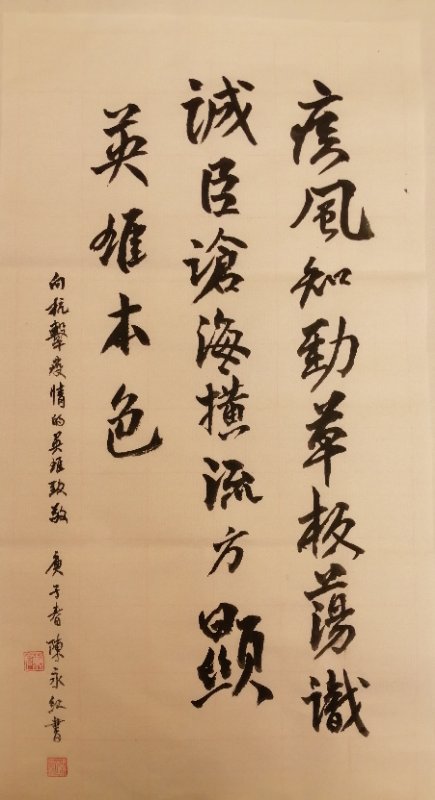 疾風知勁草板蕩識
誠臣滄海橫流方顯
英雄本色
向抗擊疫情的英雄致敬 庚子春陳永紅書